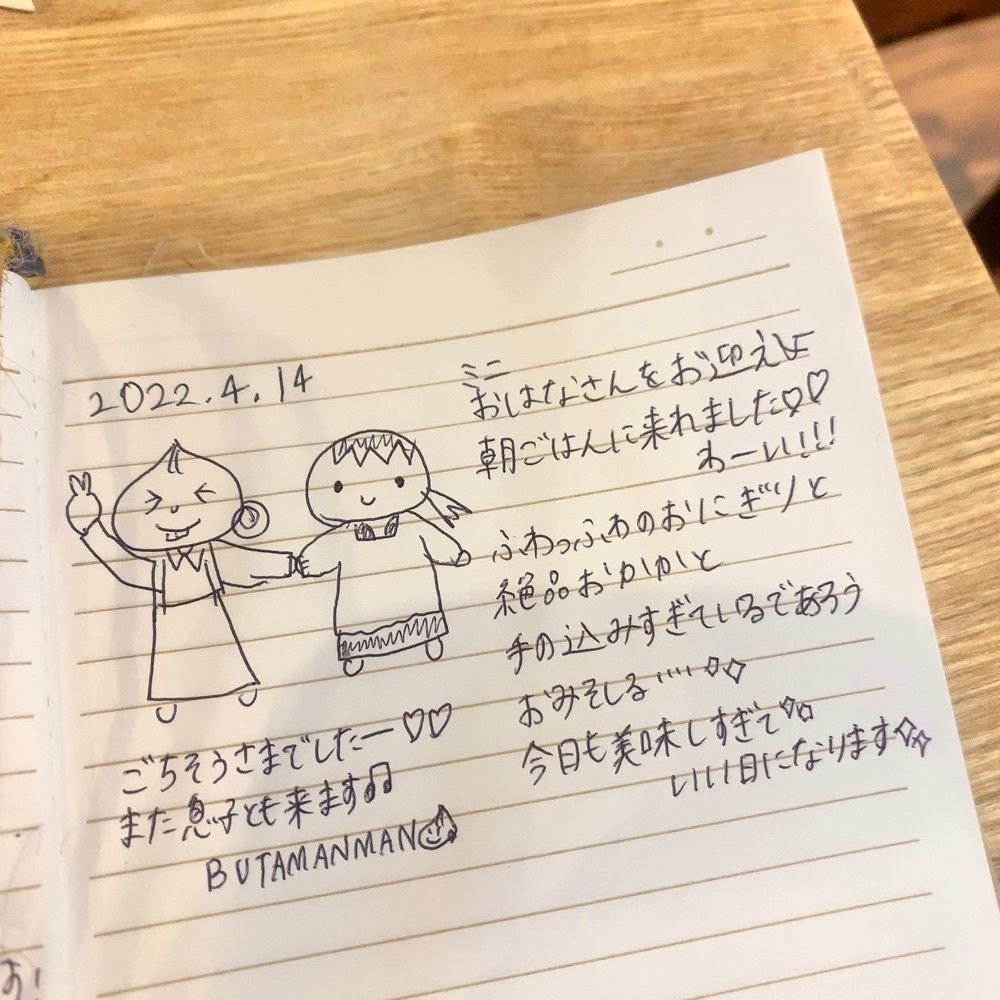 2022.4.14
ミニ
おはなさんをお迎えし
朝ごはんに来れました♡♡
わーい!!!
ふわっふわのおにぎりと
絶品おかかと
手の込みすぎているであろう
おみそしる…✧✧
今日も美味しすぎて✧✧
いい日になります✧✧
ごちそうさまでしたー♡♡
また息子とも来ます♫
BUTAMANMAN